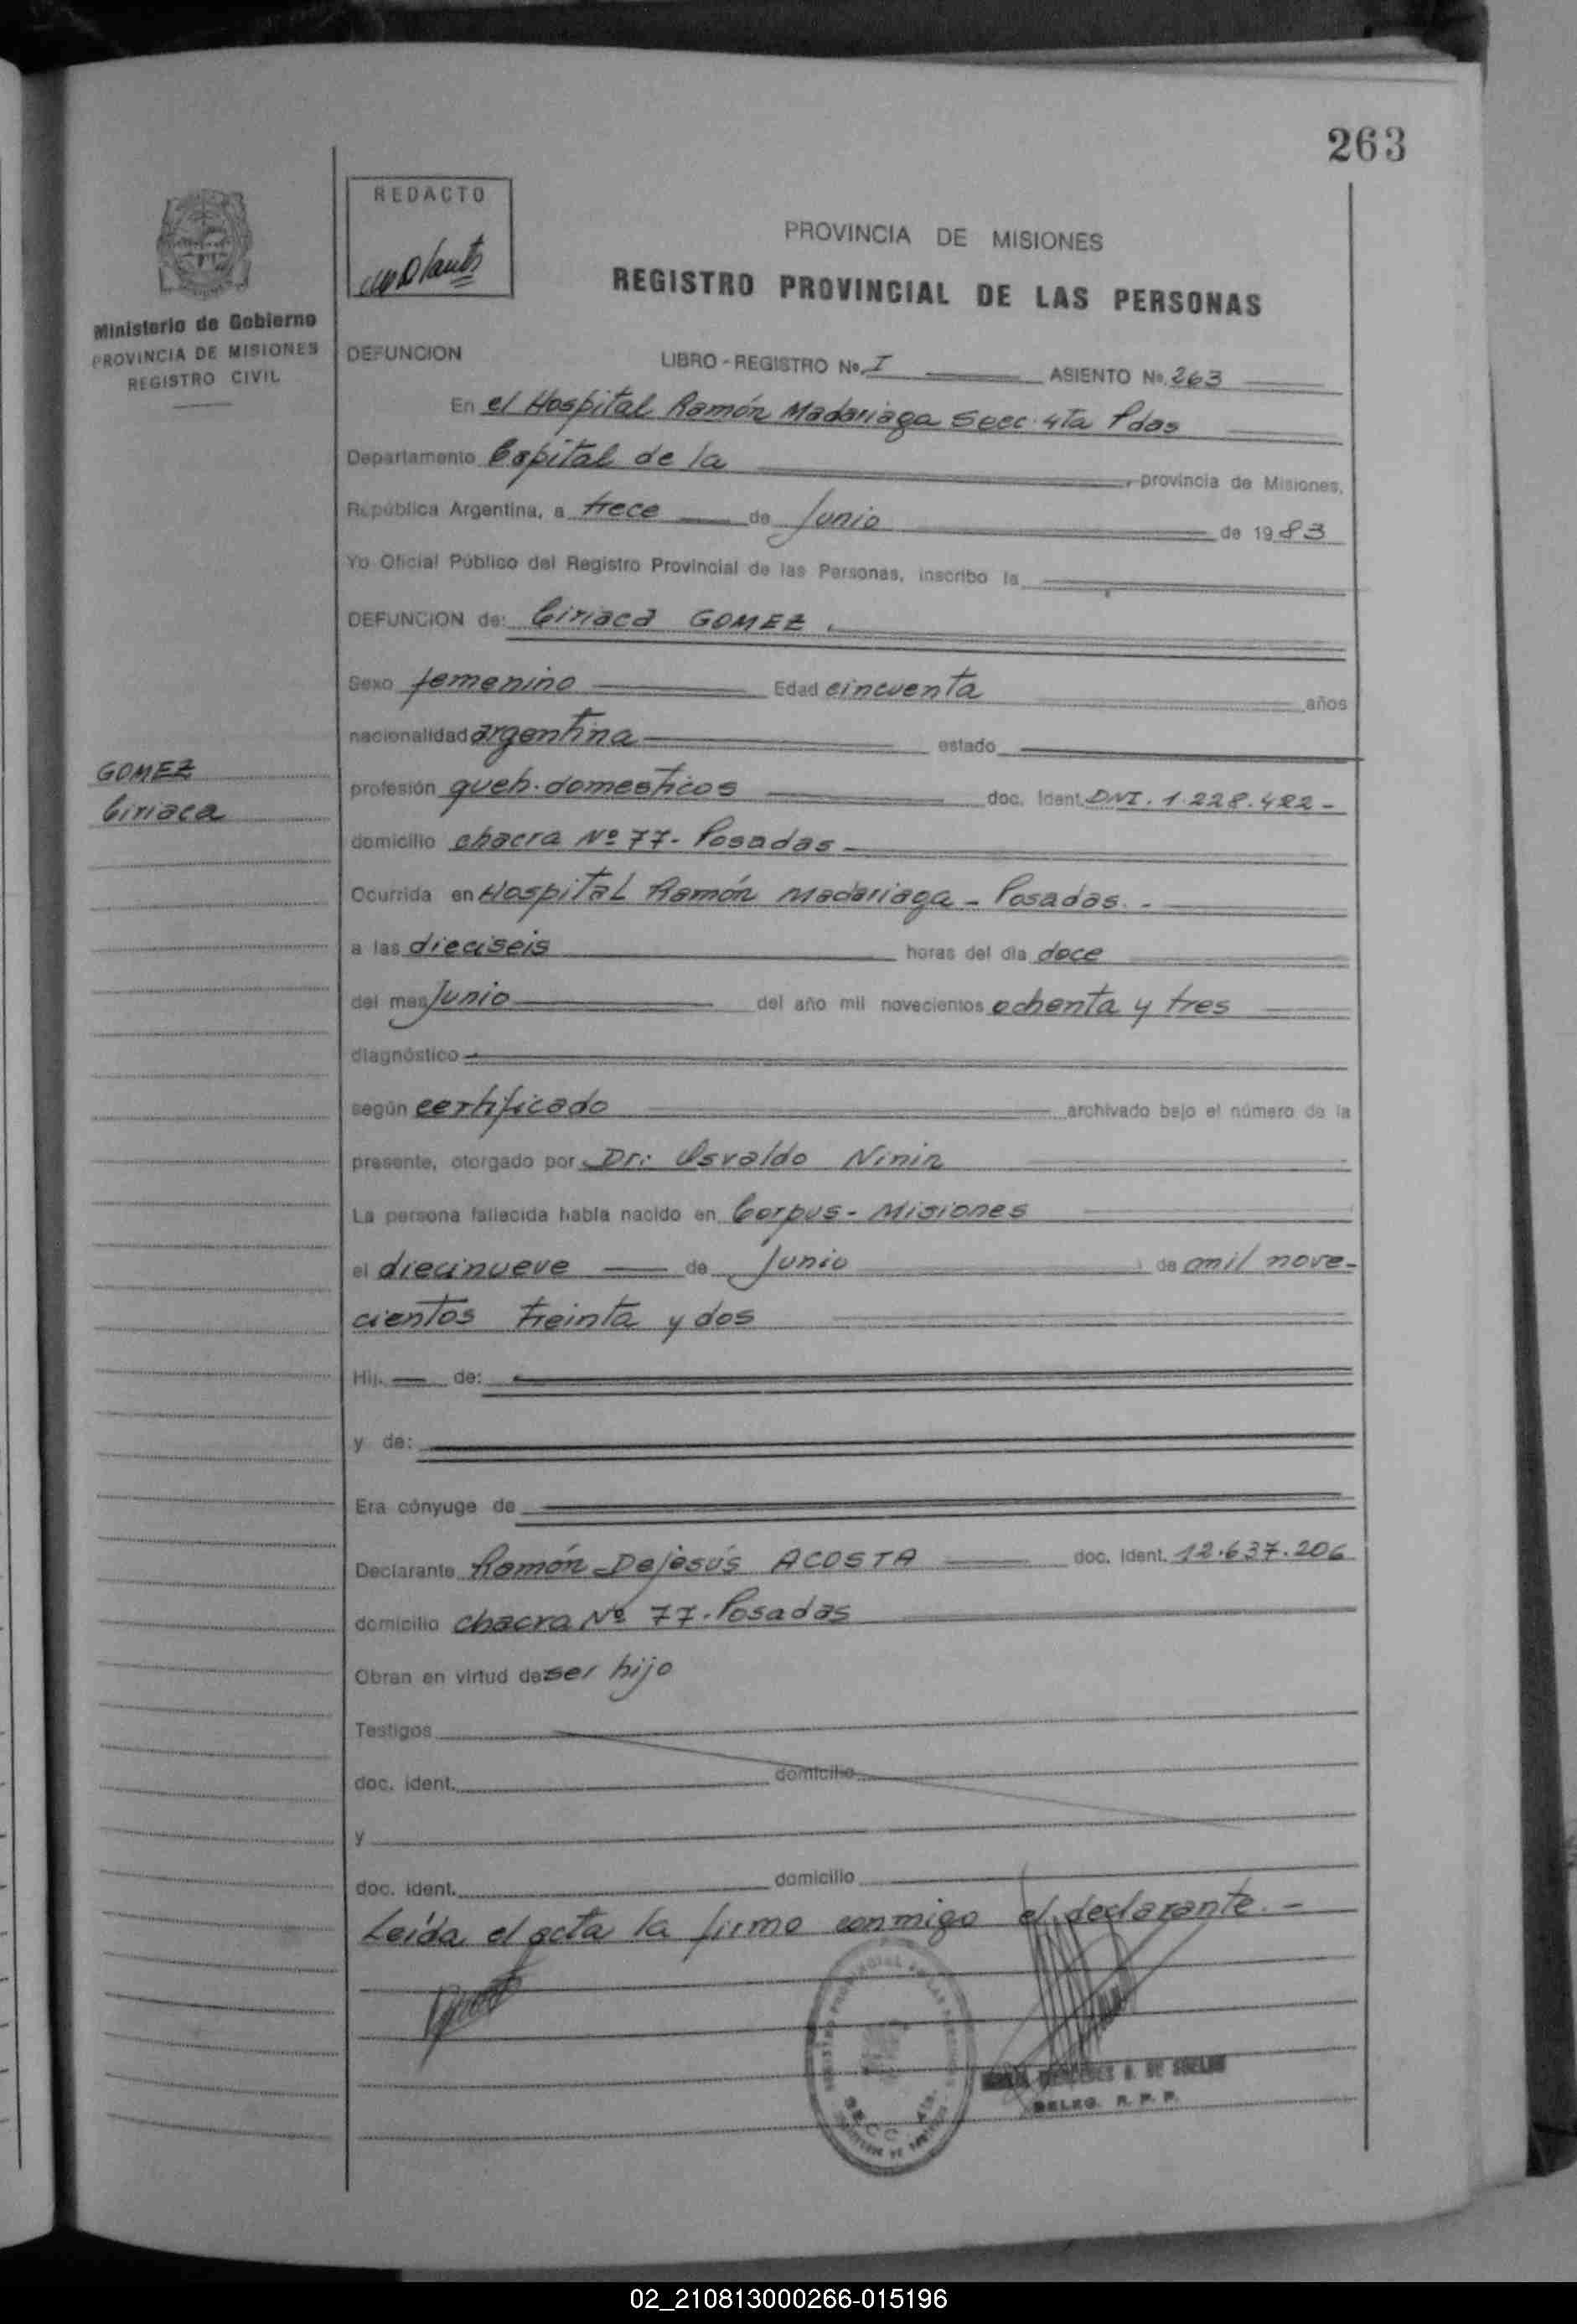 263
REDACTO
PROVINCIA DE MISIONES
REGISTRO PROVINCIAL DE LAS PERSONAS
Ministerio de Gobierno
PROVINCIA DE MISIONES
REGISTRO CIVIL
DEFUNCION LIBRO - REGISTRO No. I ASIENTO No. 263
En el Hospital Ramón Madariaga Secc. 4ta Pdas
Departamento Capital de la , provincia de Misiones,
República Argentina, a trece de Junio de 1983
Yo Oficial Público del Registro Provincial de las Personas, inscribo la
DEFUNCION de: Ciriaca GOMEZ.
Sexo femenino Edad cincuenta años
nacionalidad argentina estado
GOMEZ
Ciriaca
profesión queh. domesticos doc. Ident. DNI. 1.228.422 -
domicilio chacra Nº 77- Posadas -
Ocurrida en Hospital Ramón Madariaga - Posadas. -
a las dieciseis horas del día doce
del mes Junio del año mil novecientos ochenta y tres
diagnóstico
según certificado archivado bajo el número de la
presente, otorgado por Dr: Osvaldo Ninin
La persona fallecida había nacido en Corpus - Misiones
el diecinueve de Junio de mil nove-
cientos treinta y dos
Hij. de:
y de:
Era cónyuge de
Declarante Ramón Dejesús ACOSTA doc. Ident. 12.637.206
domicilio chacra Nº 77. Posadas
Obran en virtud de ser hijo
Testigos
doc. ident. domicilio
y
doc. ident. domicilio
Leída el acta la firma conmigo el declarante. -
DELEG. R. P. P.
02_210813000266-015196